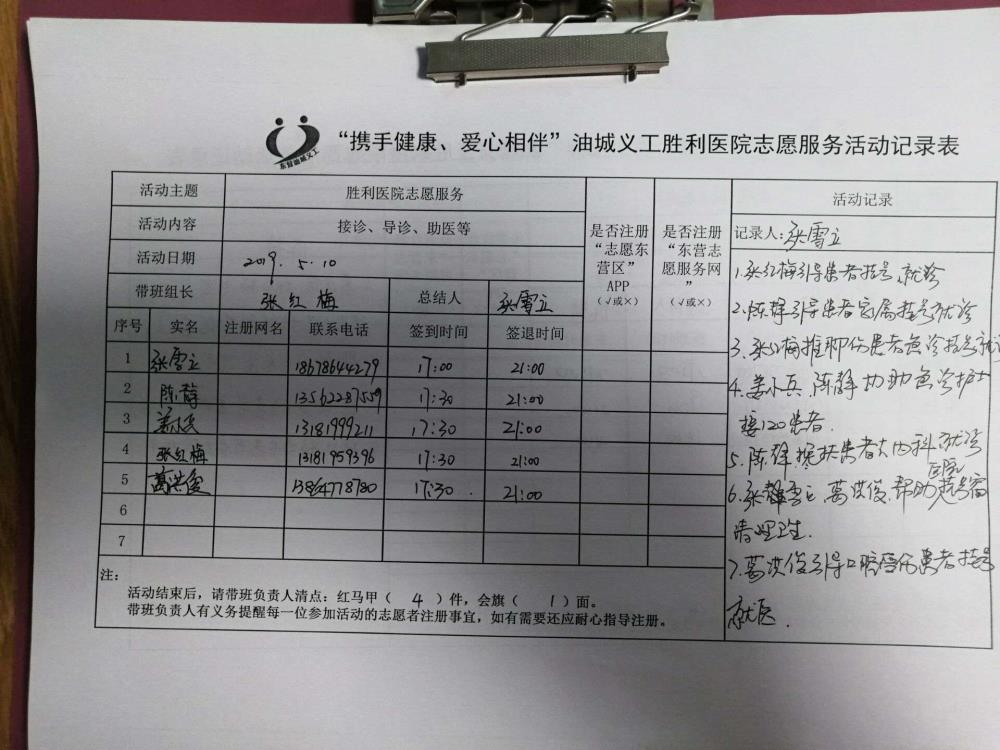 东营油城义工
“携手健康、爱心相伴”油城义工胜利医院志愿服务活动记录表
活动主题 胜利医院志愿服务
活动内容 接诊、导诊、助医等
活动日期 2019.5.10
带班组长 张红梅 总结人 张雪立
序号 实名 注册网名 联系电话 签到时间 签退时间
是否注册“志愿东营区”APP（√或×）
是否注册“东营志愿服务网”（√或×）
1 张雪立 18678644279 17:00 21:00
2 陈静 13562287559 17:30 21:00
3 姜小兵 13181999211 17:30 21:00
4 张红梅 13181959396 17:30 21:00
5 葛洪俊 13864778780 17:30 21:00
6
7
注：
活动结束后，请带班负责人清点：红马甲（4）件，会旗（1）面。
带班负责人有义务提醒每一位参加活动的志愿者注册事宜，如有需要还应耐心指导注册。
活动记录
记录人：张雪立
1.张红梅引导患者挂号、就诊
2.陈静引导患者家属挂号就诊
3.张红梅推脚伤患者急诊挂号就诊
4.姜小兵、陈静协助急诊护士
接120患者.
5.陈静搀扶患者去内科就诊
6.张雪立、葛洪俊、帮助医院
清理卫生.
7.葛洪俊引导口腔受伤患者挂号
就医.